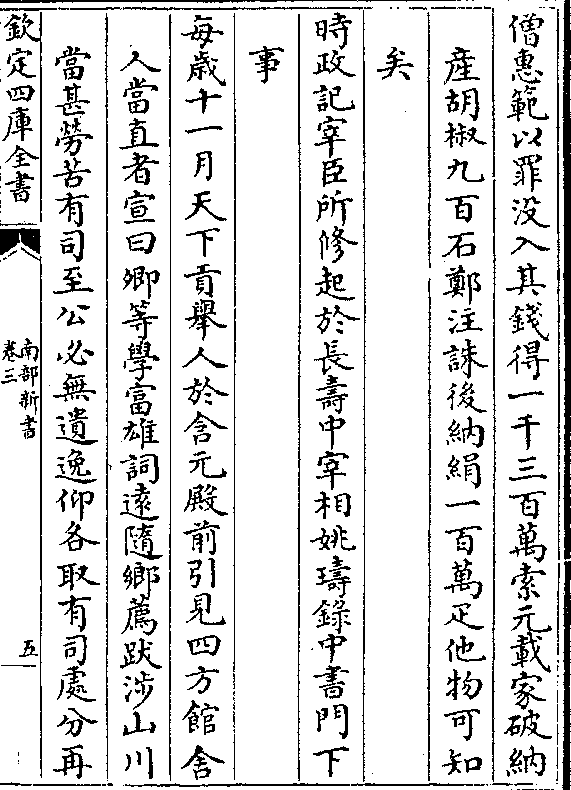 僧惠範以罪没入其錢得一千三百萬索元載家破納
産胡椒九百石鄭注誅後納絹一百萬疋他物可知
矣
時政記宰臣所修起於長壽中宰相姚璹錄中書門下
事
每歳十一月天下貢舉人於含元殿前引見四方館舍
人當直者宣曰卿等學富雄詞遠隨鄉薦跋涉山川
當甚勞苦有司至公必無遺逸仰各取有司處分再
欽定四庫全書
南部新書
卷三
五